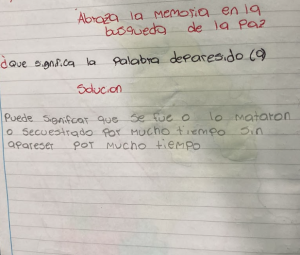 Abraza la memoria en la
busqueda de la Paz
¿que signfica la palabra deparesido (9)
Solucion
Puede signficar que se fue o lo mataron
o secuestrado por mucho tiempo sin
apareser por mucho tiempo